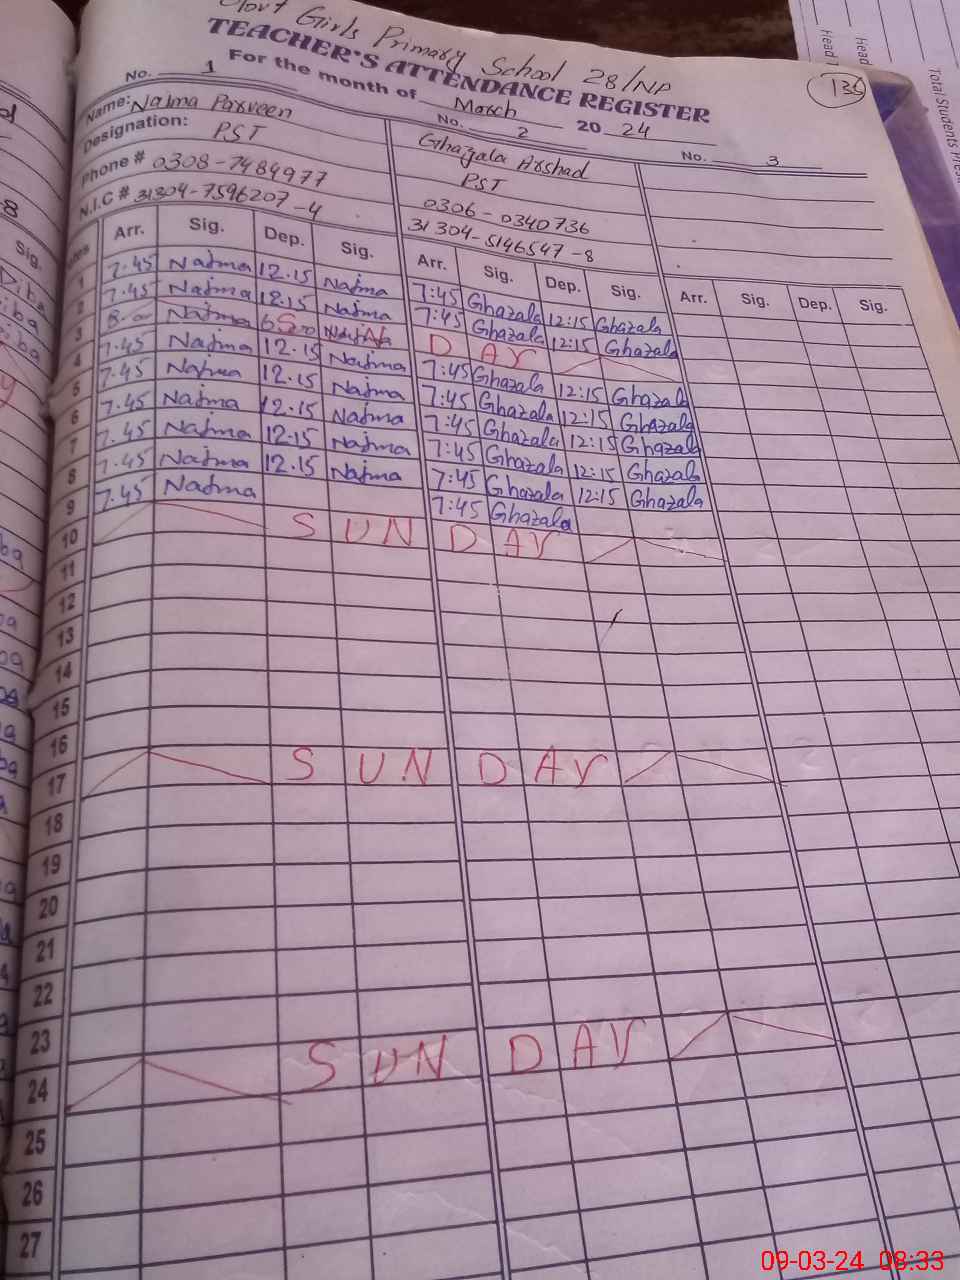 Govt Girls Primary School 28/NP
TEACHER'S ATTENDANCE REGISTER
136
For the month of March 2024
No. 1 No. 2 No. 3
Name: Najma Parveen Ghazala Arshad
Designation: PST PST
Phone # 0308-7484977 0306-0340736
N.I.C # 31304-7596207-4 31304-5146547-8
Arr. Sig. Dep. Sig. Arr. Sig. Dep. Sig. Arr. Sig. Dep. Sig.
1 7.45 Najma 12.15 Najma 7:45 Ghazala 12:15 Ghazala
2 7.45 Najma 12.15 Najma 7:45 Ghazala 12:15 Ghazala
3 8.00 Najma S N D A Y
4 7.45 Najma 12.15 Najma 7:45 Ghazala 12:15 Ghazala
5 7.45 Najma 12.15 Najma 7:45 Ghazala 12:15 Ghazala
6 7.45 Najma 12.15 Najma 7:45 Ghazala 12:15 Ghazala
7 7.45 Najma 12.15 Najma 7:45 Ghazala 12:15 Ghazala
8 7.45 Najma 12.15 Najma 7:45 Ghazala 12:15 Ghazala
9 7.45 Najma 7:45 Ghazala
10 S U N D A Y
11
12
13
14
15
16
17 S U N D A Y
18
19
20
21
22
23
24 S U N D A Y
25
26
27
Total Students Pres
head
Head
Sig.
09-03-24 08:33